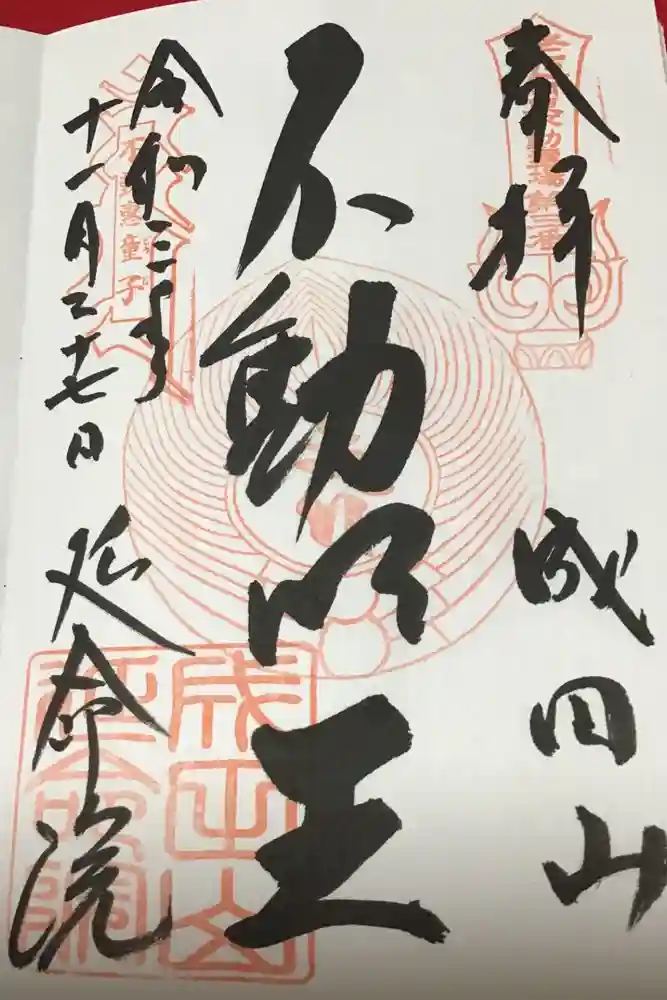 奉拝
成田山
不動明王
令和三年
十一月二十七日
延命院
成田山
延命院